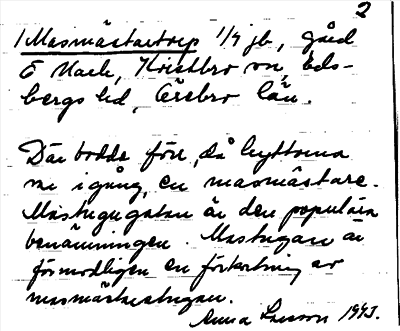 2
1 Masmästaretorp 1/4 jb, gård
Ö Hack, Kristbro vn, Eds-
bergs hd, Örebro län.
Där bodde förr, då hyttorna
va igång, en masmästare.
Mastugugatan är den populära
benämningen. Mastugan är
förmodligen en förkortning av
masmästarstugan.
Anna Larsson 1943.